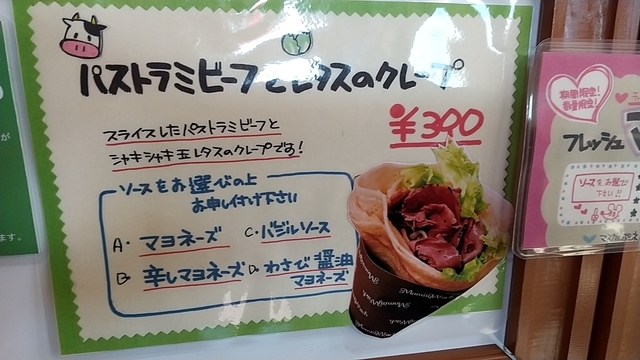 パストラミビーフとレタスのクレープ
¥300
スライスしたパストラミビーフと
シャキシャキ玉レタスのクレープです!
ソースをお選びの上
お申し付け下さい
A. マヨネーズ C. バジルソース
B 辛しマヨネーズ D. わさび醤油
マヨネーズ
期間限定!
数量限定!
フレッシュ
ソースをお選び
下さい!!